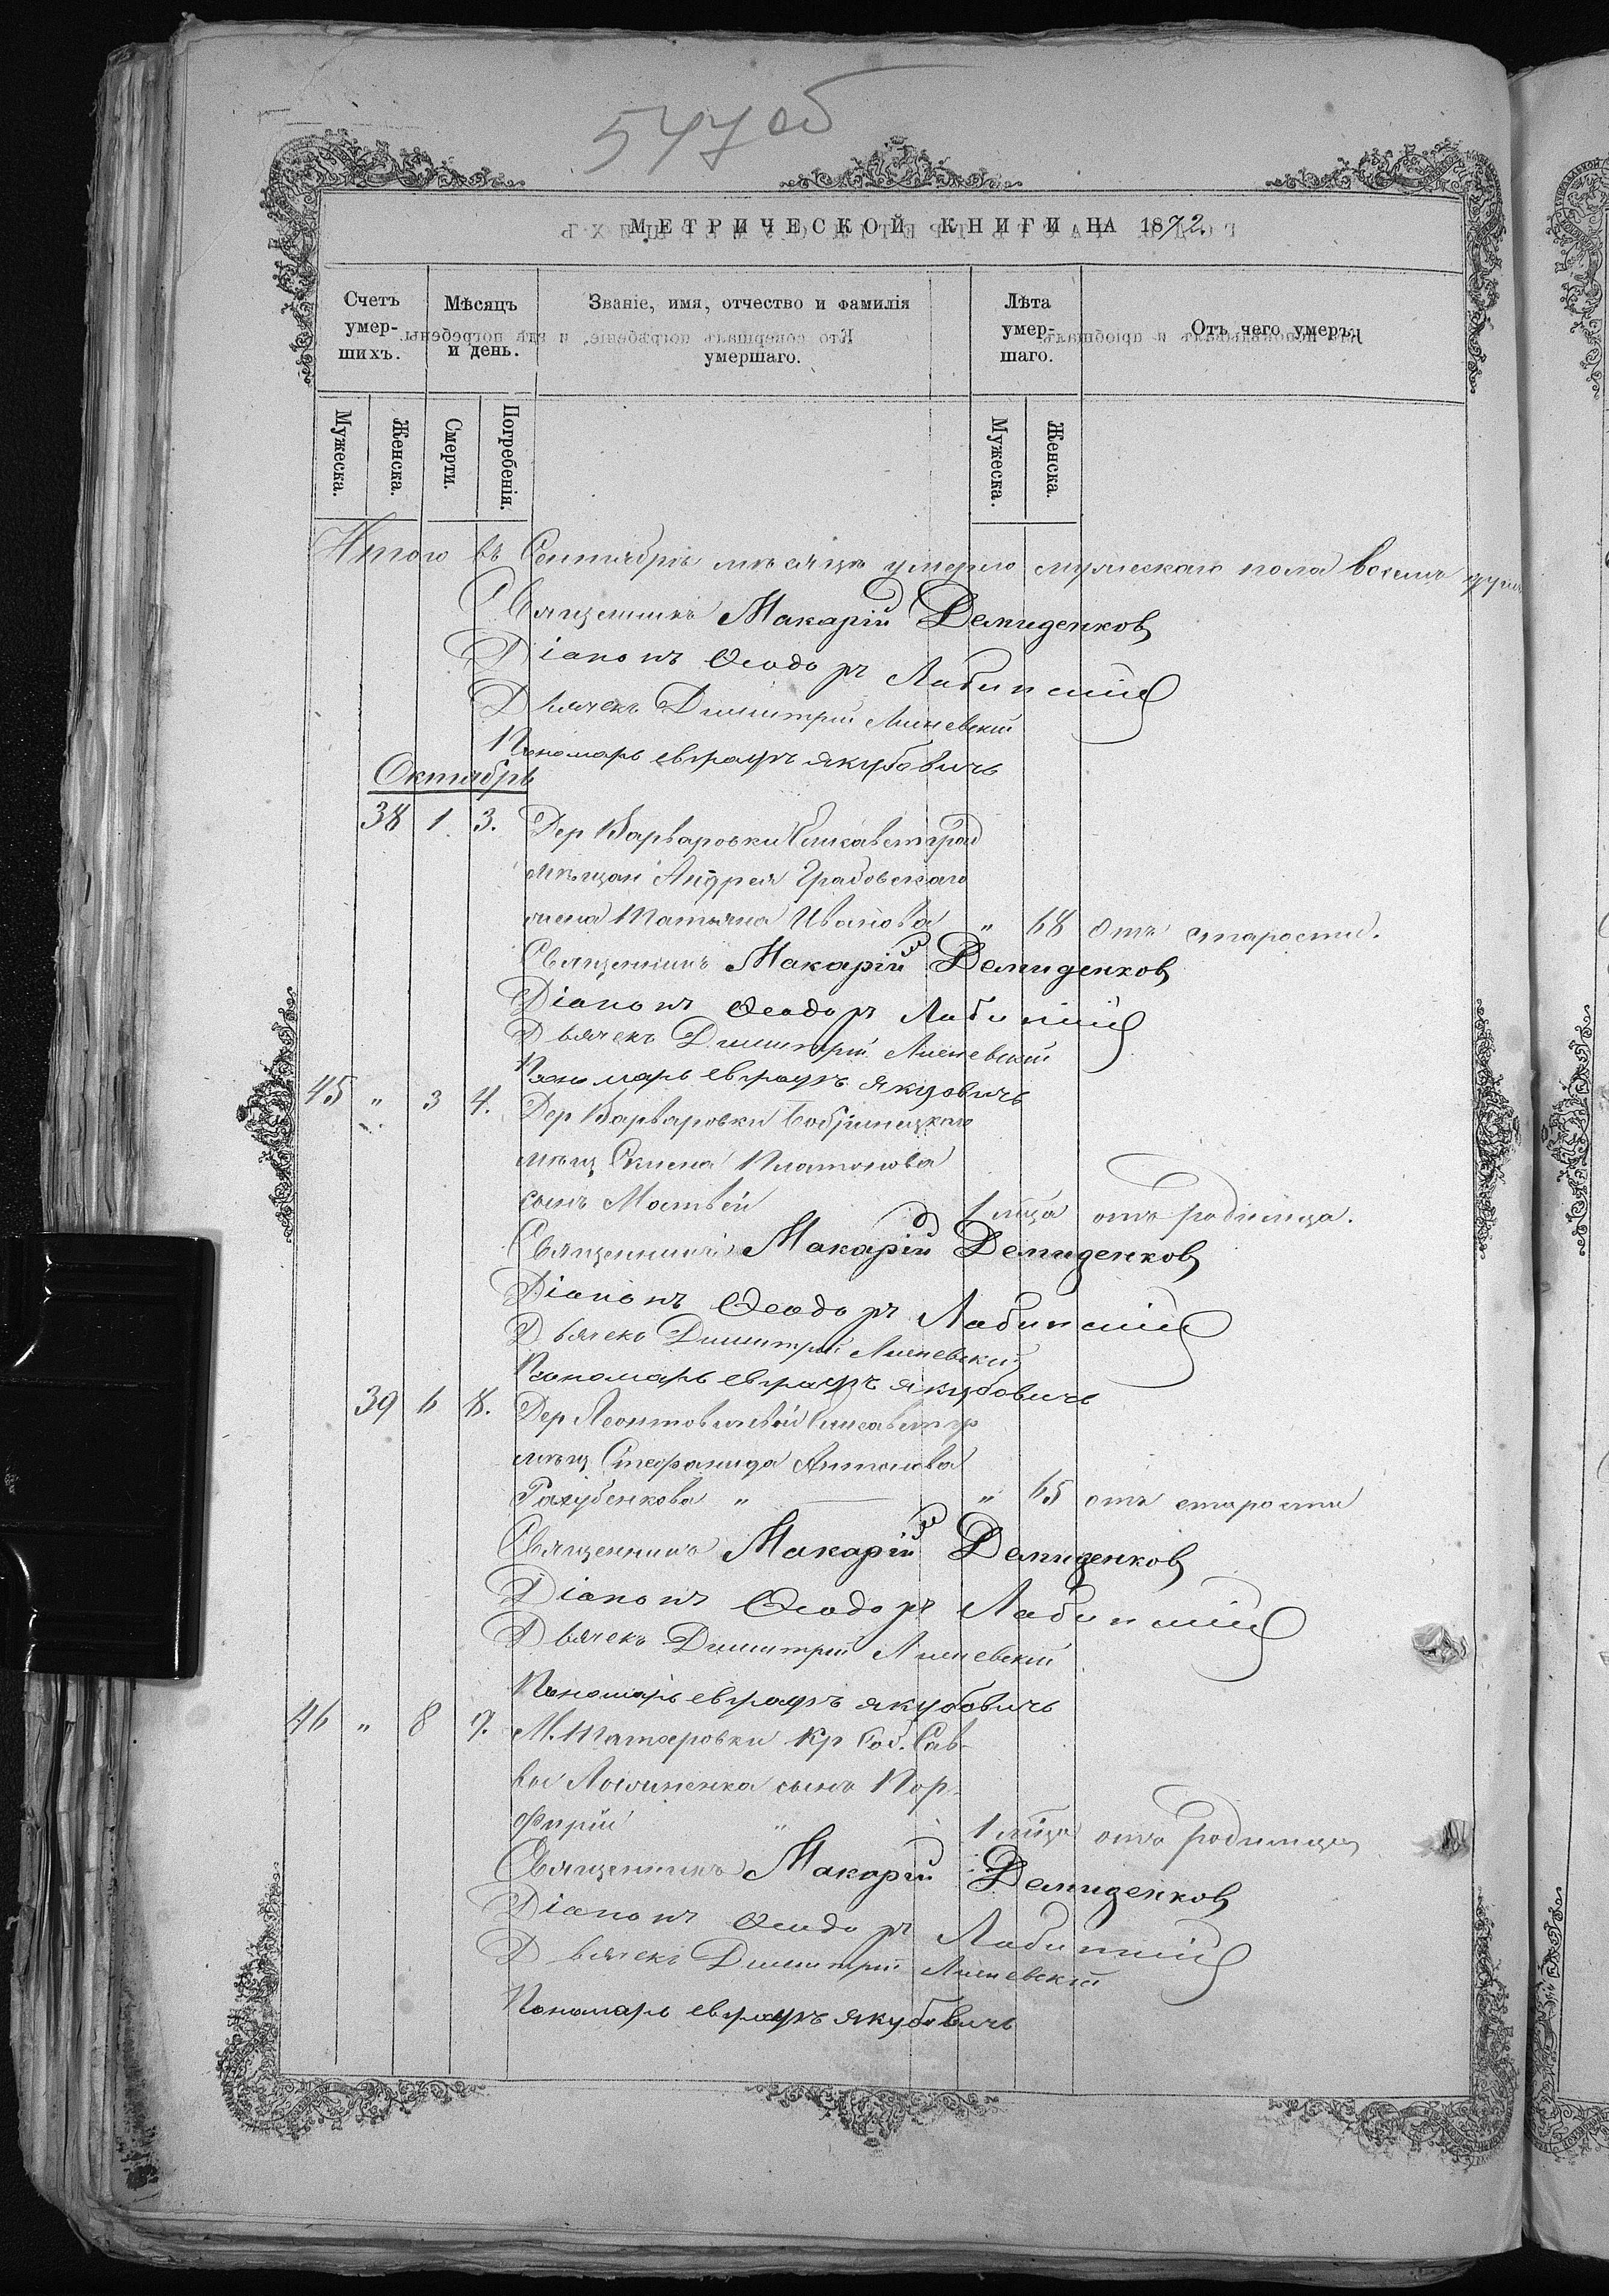 547 об
МЕТРИЧЕСКОЙ КНИГИ НА 1872.
Счетъ умер-шихъ.
Мѣсяцъ и день.
Званіе, имя, отчество и фамилія умершаго.
Лѣта умер-шаго.
Отъ чего умеръ.
Мужеска. Женска. Смерти. Погребенія. Мужеска. Женска.
Итого въ Сентябрѣ мѣсяцѣ умерло мужескаго пола восемь душъ
Священникъ Макарій Демиденков
Діаконъ Ѳеодоръ
Дьячекъ Димитрій
Пономарь Евграфъ Якубовичъ
Октябрь
38 1. 3. Дер Варваровки Елисаветград
мѣщан Андрея Грабовскаго
жена Татьяна Иванова " 68 отъ старости.
Священникъ Макарій Демиденков
Діаконъ Ѳеодоръ
Дьячекъ Димитрій
Пономарь Евграфъ Якубовичъ
45 " 3 4. Дер Варваровки Бобринецкаго
мѣщ Платонова
сынъ Матвей 1 мѣца отъ родимца.
Священникъ Макарій Демиденков
Діаконъ Ѳеодоръ
Дьячекъ Димитрій
Пономарь Евграфъ Якубовичъ
39 6 8. Дер Елисаветгр
мѣщ Стефанида Антонова
" " 65 отъ старости
Священникъ Макарій Демиденков
Діаконъ Ѳеодоръ
Дьячекъ Димитрій
Пономарь Евграфъ Якубовичъ
46 " 8 9. М. Татаровки Кр Соб. Сав-
вы сынъ Пор-
фирій " 1 мѣца отъ родимца
Священникъ Макарій Демиденков
Діаконъ Ѳеодоръ
Дьячекъ Димитрій
Пономарь Евграфъ Якубовичъ